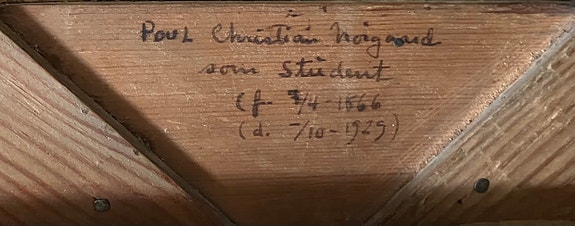 Poul Christian Norgaard
som Student
(f. 3/4-1866
(d. 7/10-1929)